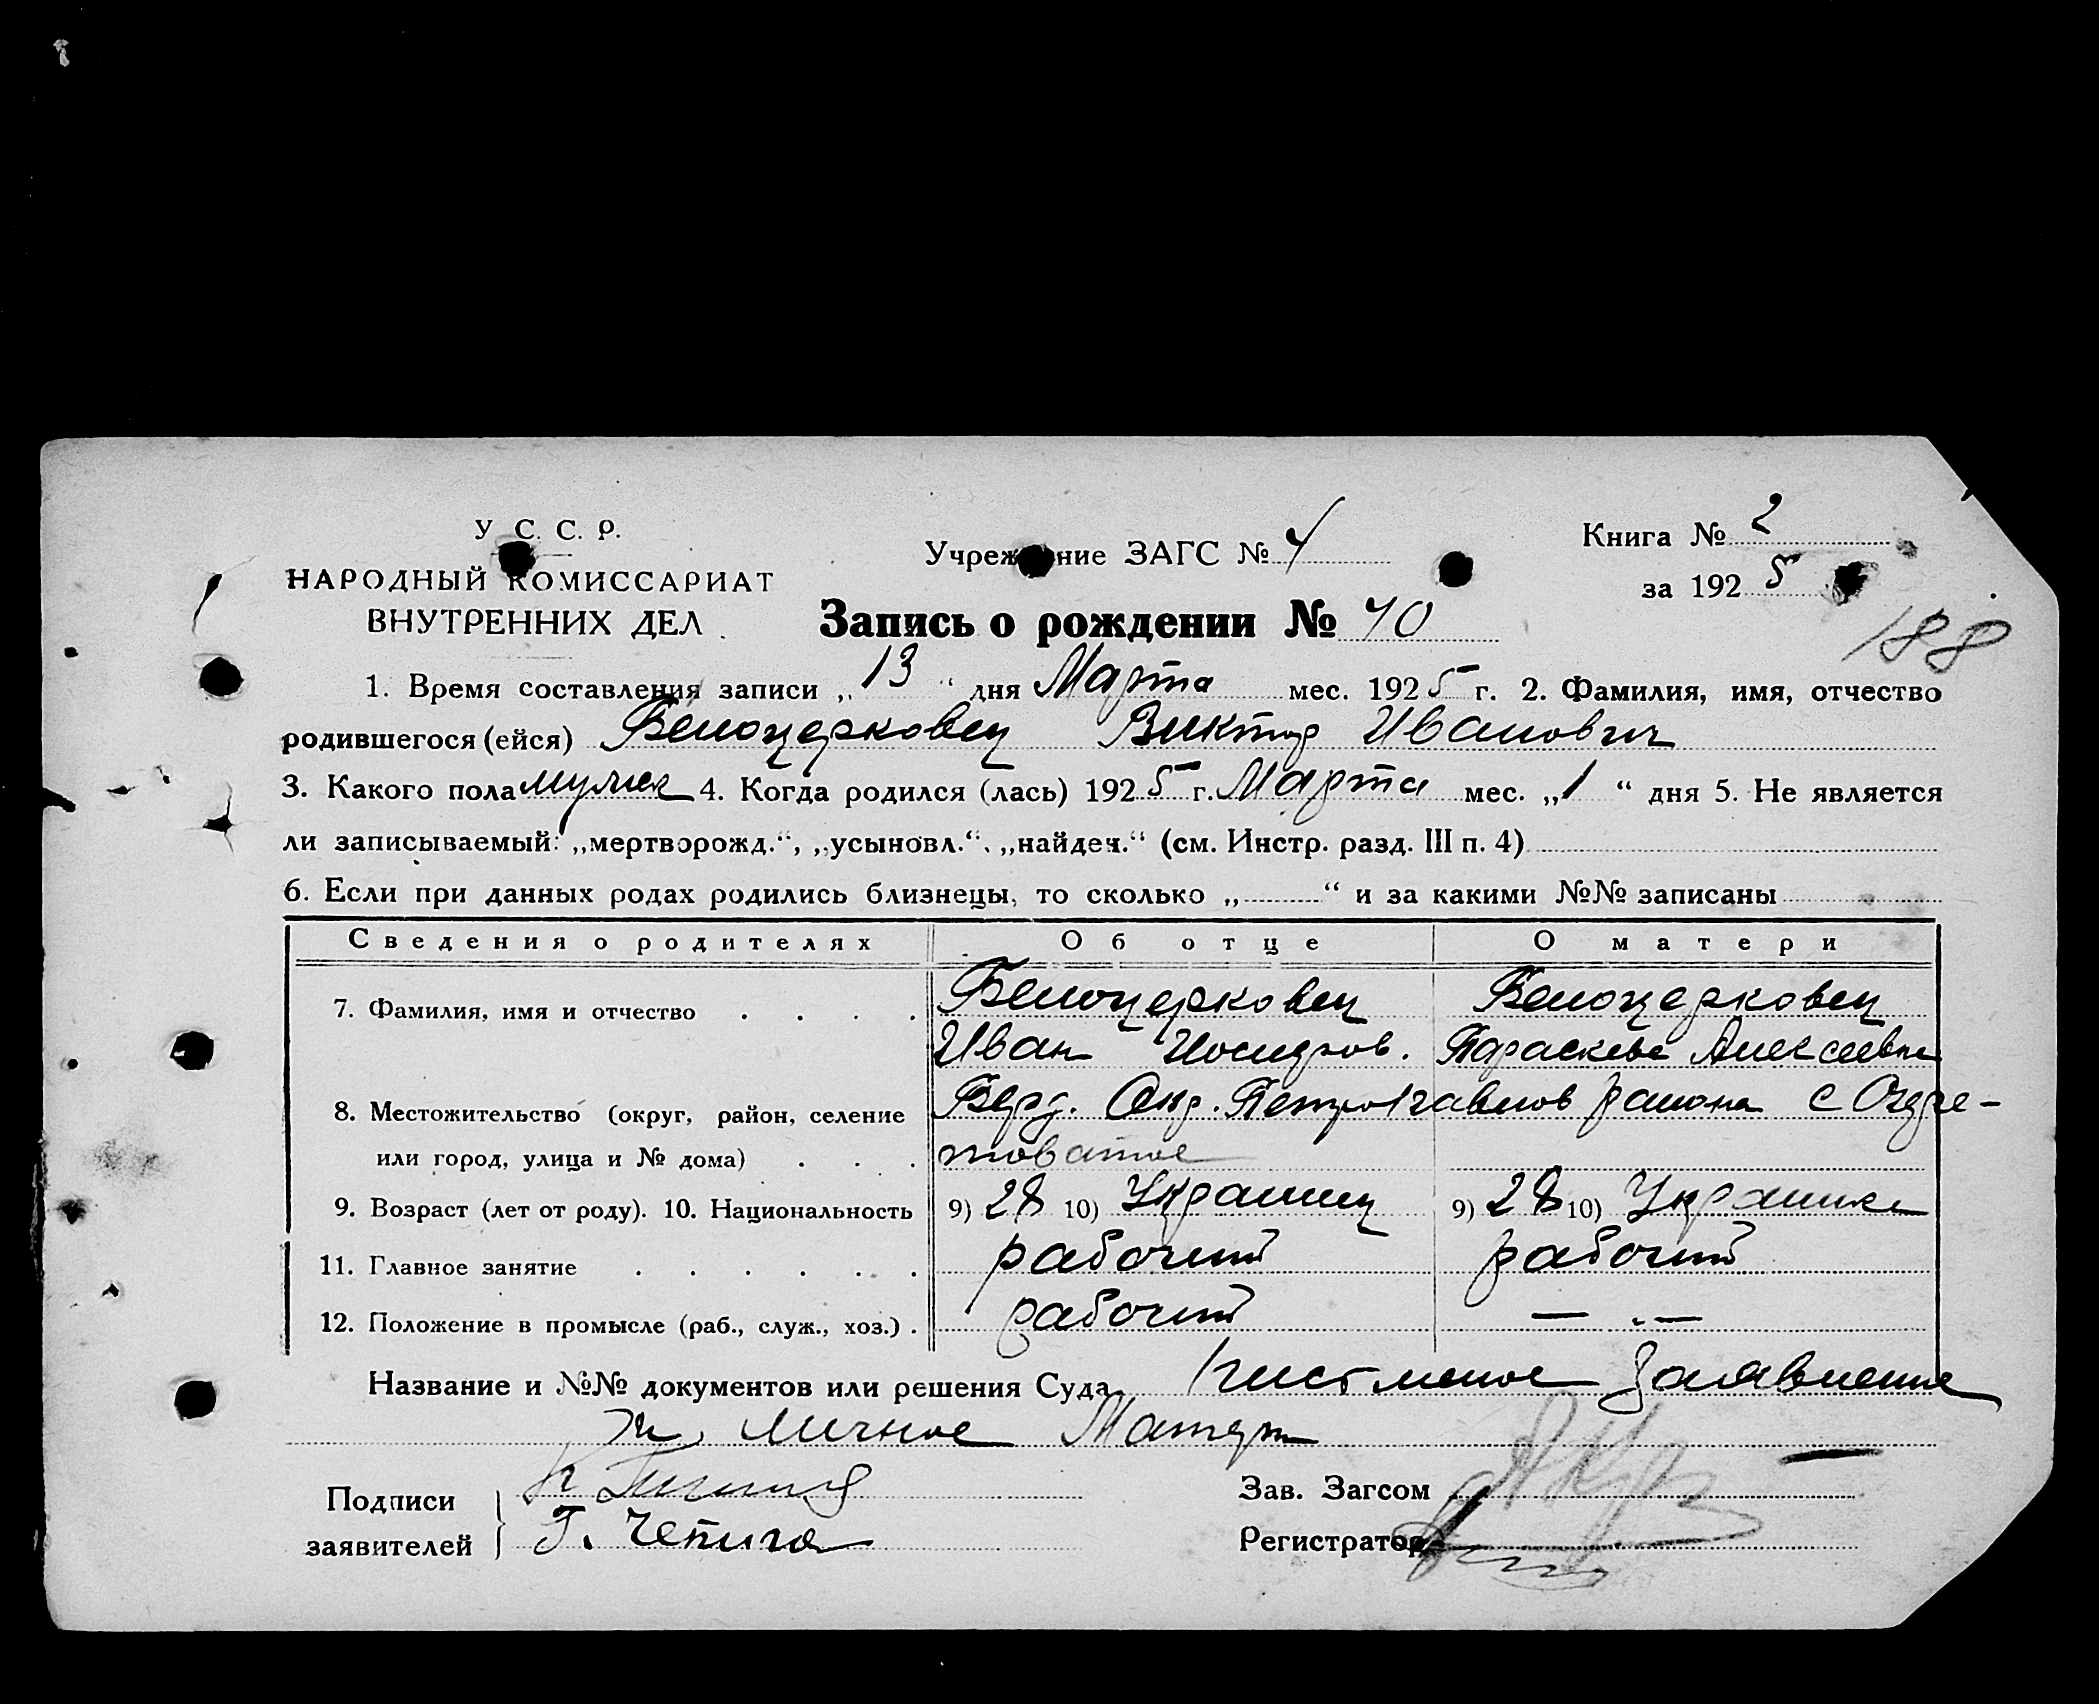 У С. С. Р.
НАРОДНЫЙ КОМИССАРИАТ
ВНУТРЕННИХ ДЕЛ
Учреждение ЗАГС № 4
Книга № 2
за 1925
Запись о рождении № 40
188
1. Время составления записи „13“ дня Марта мес. 1925 г. 2. Фамилия, имя, отчество
родившегося (ейся) Белоцерковец Виктор Иванович
3. Какого пола мужск 4. Когда родился (лась) 1925 г. Марта мес. „1“ дня 5. Не является
ли записываемый: „мертворожд.“, „усыновл.“, „найден.“ (см. Инстр. разд. III п. 4)
6. Если при данных родах родились близнецы, то сколько „ “ и за какими №№ записаны
Сведения о родителях Об отце О матери
7. Фамилия, имя и отчество Белоцерковец Белоцерковец
Иван Исидров. Параскева Алексеевна
8. Местожительство (округ, район, селение Берд. Окр. района с
или город, улица и № дома) 
9. Возраст (лет от роду). 10. Национальность 9) 28 10) Украинец 9) 28 10) Украинка
11. Главное занятие рабочий рабочий
12. Положение в промысле (раб., служ., хоз.) рабочий — „ —
Название и №№ документов или решения Суда письменное Заявление
личное Матери
Подписи
заявителей
Г. Чепига
Зав. Загсом
Регистратор